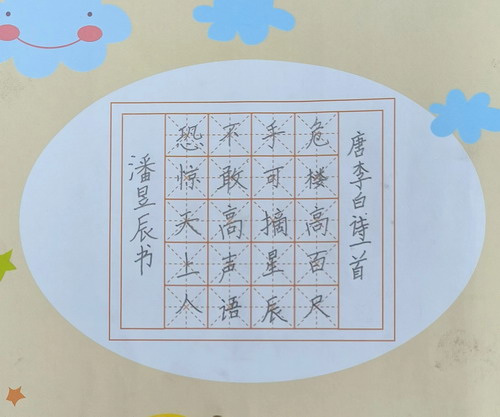 唐李白诗一首
危楼高百尺
手可摘星辰
不敢高声语
恐惊天上人
潘昱辰书